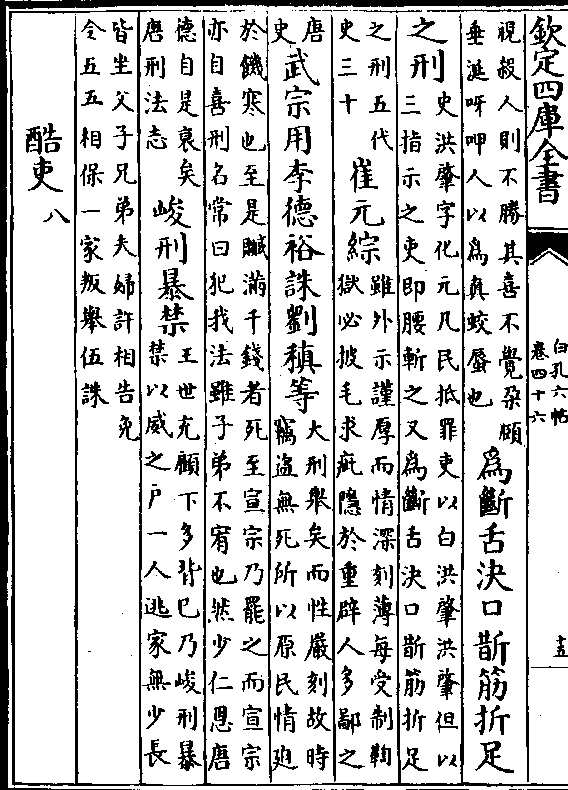 欽定四庫全書
白孔六帖
卷四十六
十五
視殺人則不勝其喜不覺朶頤
垂涎呀呷人以為真蛟蜃也
為斷舌決口斮筋折足
之刑
史洪肇字化元凡民抵罪吏以白洪肇洪肇但以
三指示之吏即腰斬之又為斷舌決口斮筋折足
之刑五代
史三十
崔元綜
雖外示謹厚而情深刻薄每受制鞫
獄必披毛求疵隱於重辟人多鄙之
唐
史
武宗用李德裕誅劉稹等
大刑舉矣而性嚴刻故時
竊盜無死所以原民情廹
於饑寒也至是贓滿千錢者死至宣宗乃罷之而宣宗
亦自喜刑名常曰犯我法雖子弟不宥也然少仁恩唐
德自是衰矣
唐刑法志
峻刑暴禁
王世充顧下多背已乃峻刑暴
禁以威之戶一人逃家無少長
皆坐父子兄弟夫婦許相告免
令五五相保一家叛舉伍誅
酷吏 八